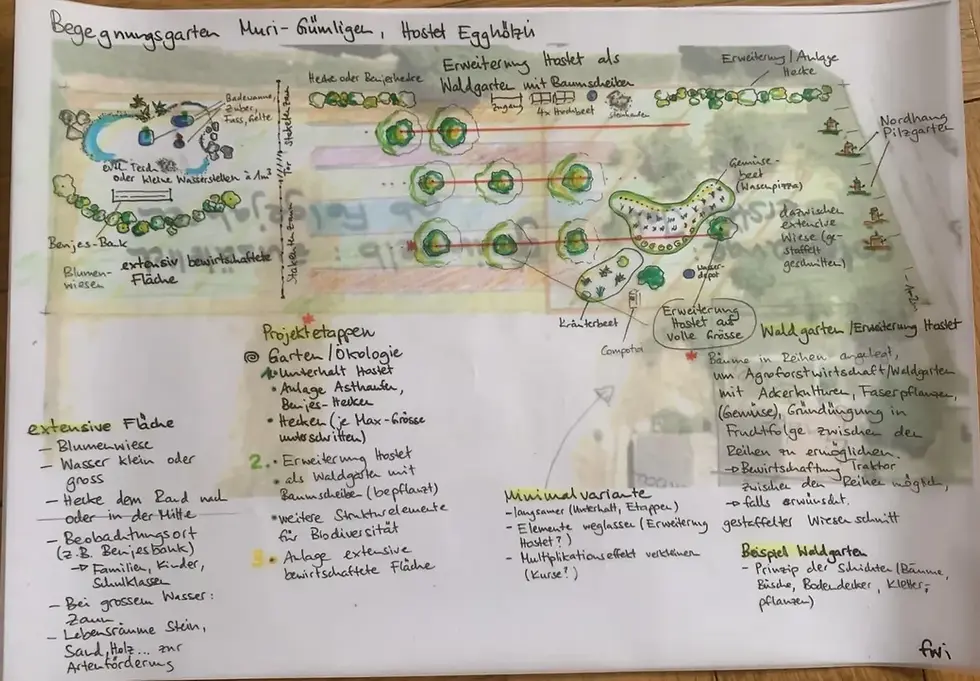 Begegnungsgarten Muri-Gümligen, Hostet Egghölzli
Erweiterung Hostet als
Waldgarten mit Baumscheiben
Erweiterung/Anlage
Hecke
Hecke oder Benjeshecke
Zugang
4x Hochbeet
Steinhaufen
Badewanne,
Zuber,
Fass, Gelte
Nordhang
Pilzgarten
evtl. Teich
oder kleine Wasserstellen à 1m³
Stakenzaun
Tor
Stakenzaun
Gemüse-
beet
(Wasenpizza)
dazwischen
extensive
Wiese (ge-
staffelt
geschnitten)
Benjes-Bank
Blumen-
wiesen
extensiv bewirtschaftete
Fläche
Wasser-
depot
Kräuterbeet
Compotoi
Erweiterung
Hostet auf
volle Grösse
Projektetappen
Garten/Ökologie
1. Unterhalt Hostet
• Anlage Asthaufen,
Benjes-Hecken
• Hecken (je Max-Grösse
unterschritten)
2. • Erweiterung Hostet
• als Waldgarten mit
Baumscheibe (bepflanzt)
• weitere Strukturelemente
für Biodiversität
3. • Anlage extensive
bewirtschaftete Fläche
Waldgarten/Erweiterung Hostet
* Bäume in Reihen angelegt,
um Agroforstwirtschaft/Waldgarten
mit Ackerkulturen, Faserpflanzen,
(Gemüse), Gründüngung in
Fruchtfolge zwischen den
Reihen zu ermöglichen.
→ Bewirtschaftung Traktor
zwischen den Reihen möglich,
→ falls erwünscht.
gestaffelter Wiesenschnitt
extensive Fläche
– Blumenwiese
– Wasser klein oder
gross
– Hecke dem Rand nah
oder in der Mitte
– Beobachtungsort
(z.B. Benjesbank)
→ Familien, Kinder,
Schulklassen
– Bei grossem Wasser:
Zaun
– Lebensräume Stein,
Sand, Holz... zur
Artenförderung
Minimalvariante
- langsamer (Unterhalt, Etappen)
- Elemente weglassen (Erweiterung
Hostet?)
- Multiplikationseffekt verkleinern
(Kurse?)
Beispiel Waldgarten
- Prinzip der Schichten (Bäume,
Büsche, Bodendecker, Kletter-
pflanzen)
fwi